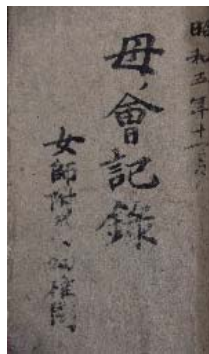 昭和五年十一月
母ノ會記錄
女師附屬幼稚園